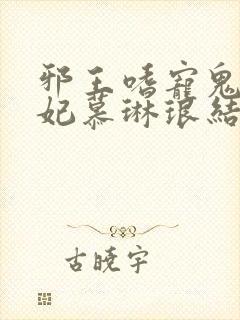 邪王嗜寵鬼
妃慕琳琅結
古曉宇